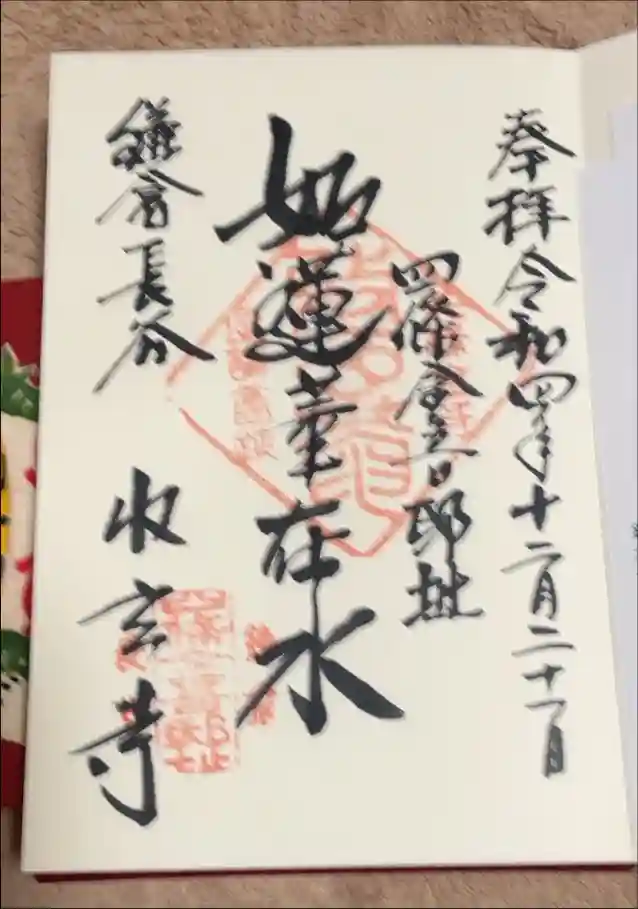 奉拝 令和四年十二月二十一日
四條金吾邸址
如蓮華在水
鎌倉長谷
収玄寺